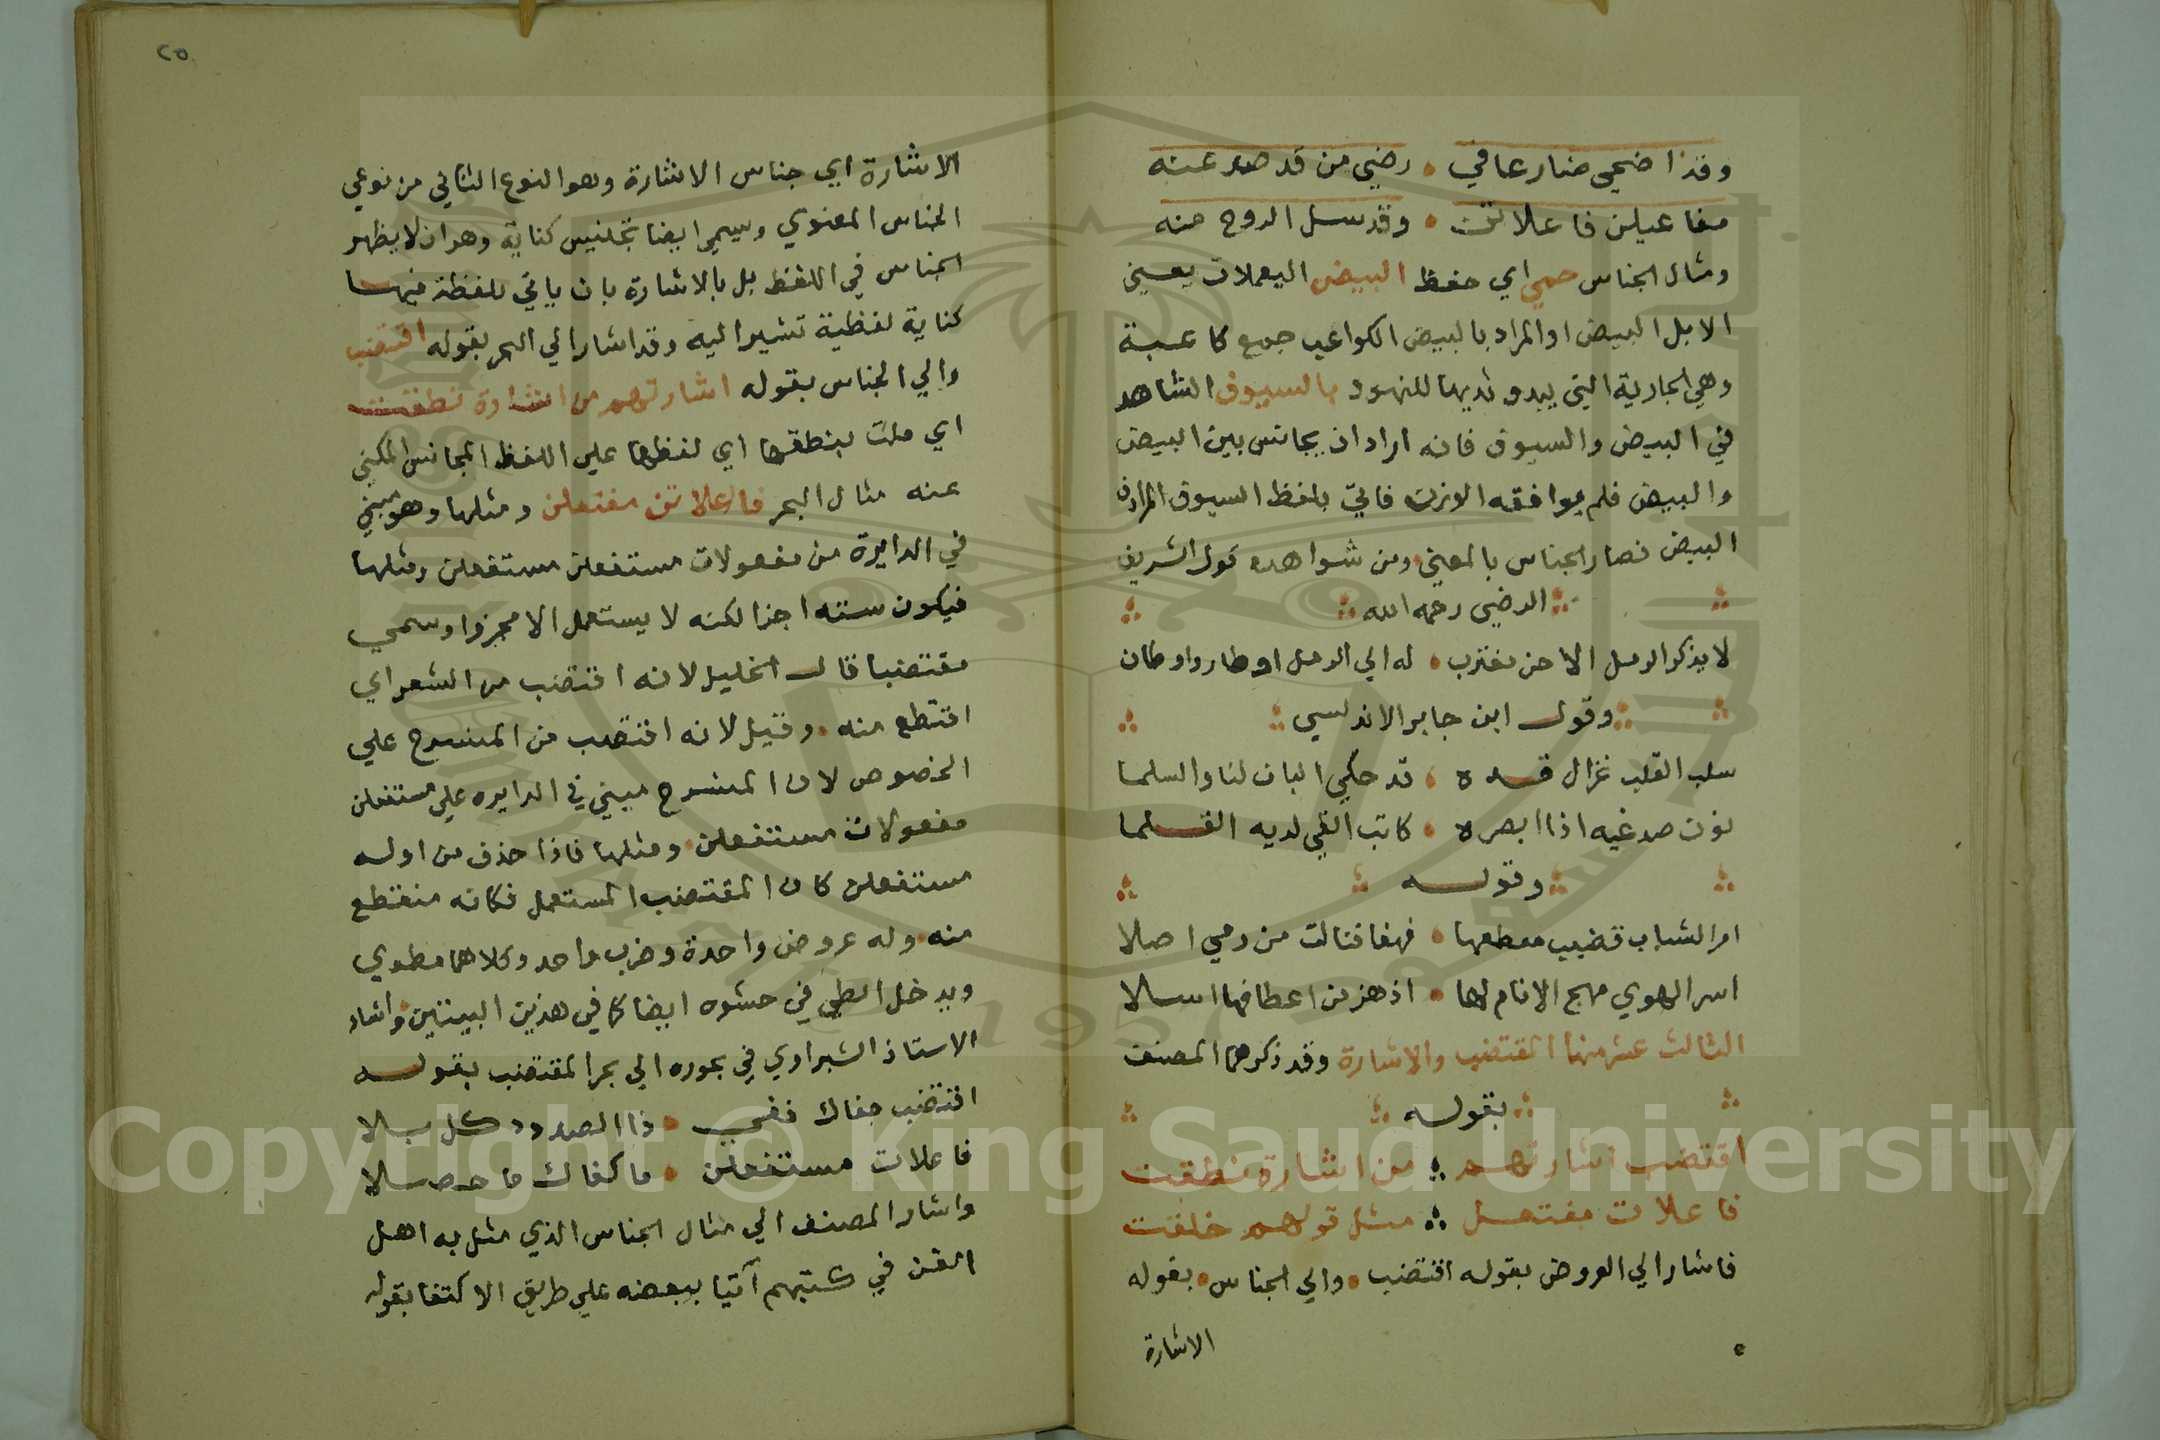 وقذا ضحي ضارعا في • رضي من قد صد عنه
مفاعيلن فاعلاتن • وقد سل الروح منه
ومثال الجناس حمي اي حفظ البيض اليعملات يعني
الابل البيض او المراد بالبيض الكواعب جمع كاعبة
وهي الجارية التي يبدو ثديها للنهود بالسيوف الشاهد
في البيض والسيوف فانه اراد ان يجانس بين البيض
والبيض فلم يوافقه الوزن فاتي بلفظ السيوف المرادف
البيض فصار الجناس بالمعني ومن شواهده قول الشريف
الرضي رحمه الله
لا يذكر الرمل الا حن مغترب • له الي الرمل اوطار واوطان
وقول ابن جابر الاندلسي
سلب القلب غزال قده • قد حكي البان لنا والسلما
نون صدغيه اذا ابصره • كاتب القي لديه القلما
وقوله
امر الشباب قضيب معطعها • فهفا فنالت من دمي اصلا
اسر الهوي مهج الانام لها • اذ هز من اعطافها اسلا
الثالث عشر منها المقتضب والاشارة وقد ذكرهما المصنف
بقوله
اقتضب اشارتهم من اشارة نطقت
فاعلات مفتعل مثل قولهم خلقت
فاشار الي العروض بقوله اقتضب • والي الجناس • بقوله
الاشارة
٢٥
الاشارة اي جناس الاشارة وهو النوع الثاني من نوعي
الجناس المعنوي ويسمي ايضا تجنيس كناية وهو ان لا يظهر
الجناس في اللفظ بل بالاشارة بان ياتي بلفظة فيها
كناية لفظية تشير اليه وقد اشار الي البحر بقوله اقتضب
والي الجناس بقوله اشارتهم من اشارة نطقت
اي ملت بنطقها اي لفظها علي اللفظ المجانس المكني
عنه مثال البحر فاعلاتن مفتعلن ومثلها وهو مبني
في الدايرة من مفعولات مستفعلن مستفعلن ومثلها
فيكون سته اجزا لكنه لا يستعمل الا مجزوا وسمي
مقتضبا قال الخليل لانه اقتضب من الشعر اي
اقتطع منه • وقيل لانه اقتضب من المنسرح علي
الخصوص لان المنسرح مبني في الدايره علي مستفعلن
مفعولات مستفعلن • ومثلها فاذا حذف من اوله
مستفعلن كان المقتضب المستعمل فكانه منقطع
منه • وله عروض واحدة وضرب واحد وكلاهما مطوي
ويدخل الطي في حشوه ايضا كما في هذين البيتين • واشار
الاستاذ الشبراوي في بحوره الي بحر المقتضب بقوله
اقتضب جفاك ففي • ذا الصدود كل بلا
فاعلات مستفعلن • ما كفاك ما حصلا
واشار المصنف الي مثال الجناس الذي مثل به اهل
الفن في كتبهم آتيا ببعضه علي طريق الاكتفا بقوله
Copyright © King Saud University